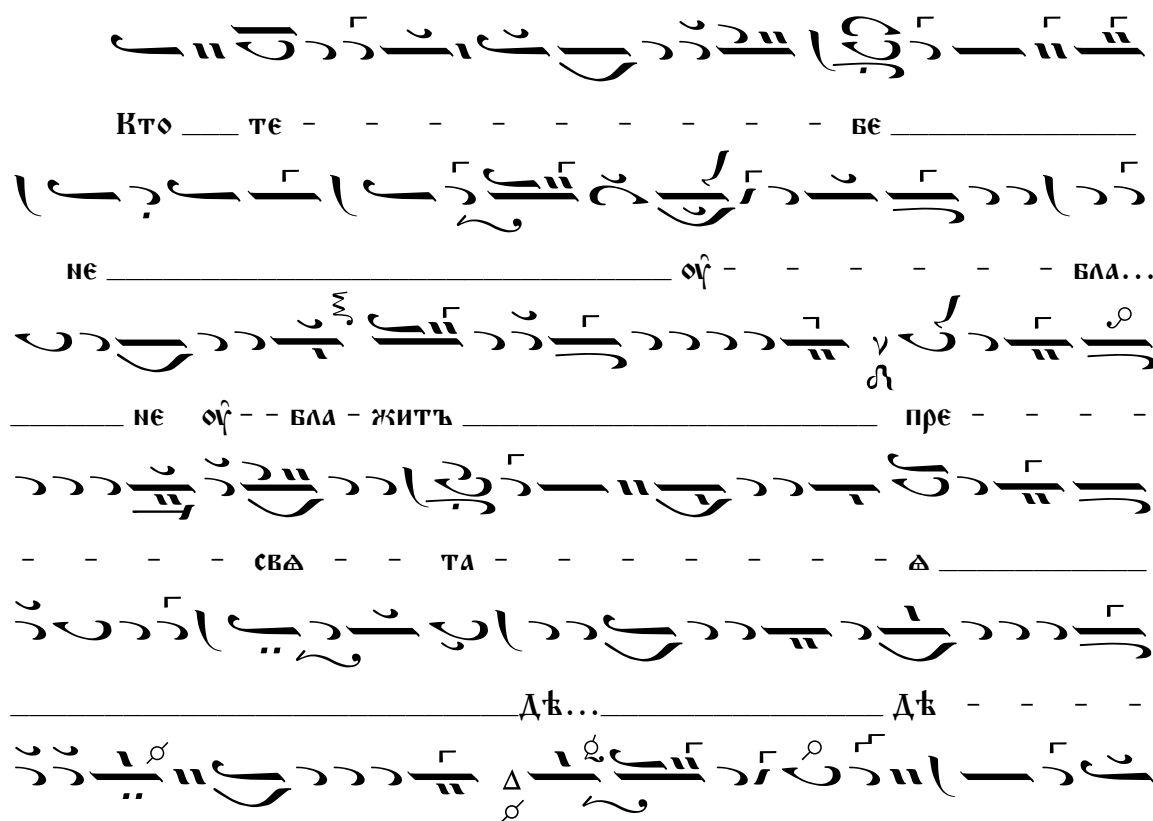 Кто ___ те - - - - - - - - - бе ____________
не ______________________________ оу҆̑ - - - - - - бла...
______ не оу҆̑ - - бла - житъ ______________________ пре - - - -
- - - - свѧ - - та - - - - - - - ѧ ___________
___________________________Дѣ..._______________ Дѣ - - - -